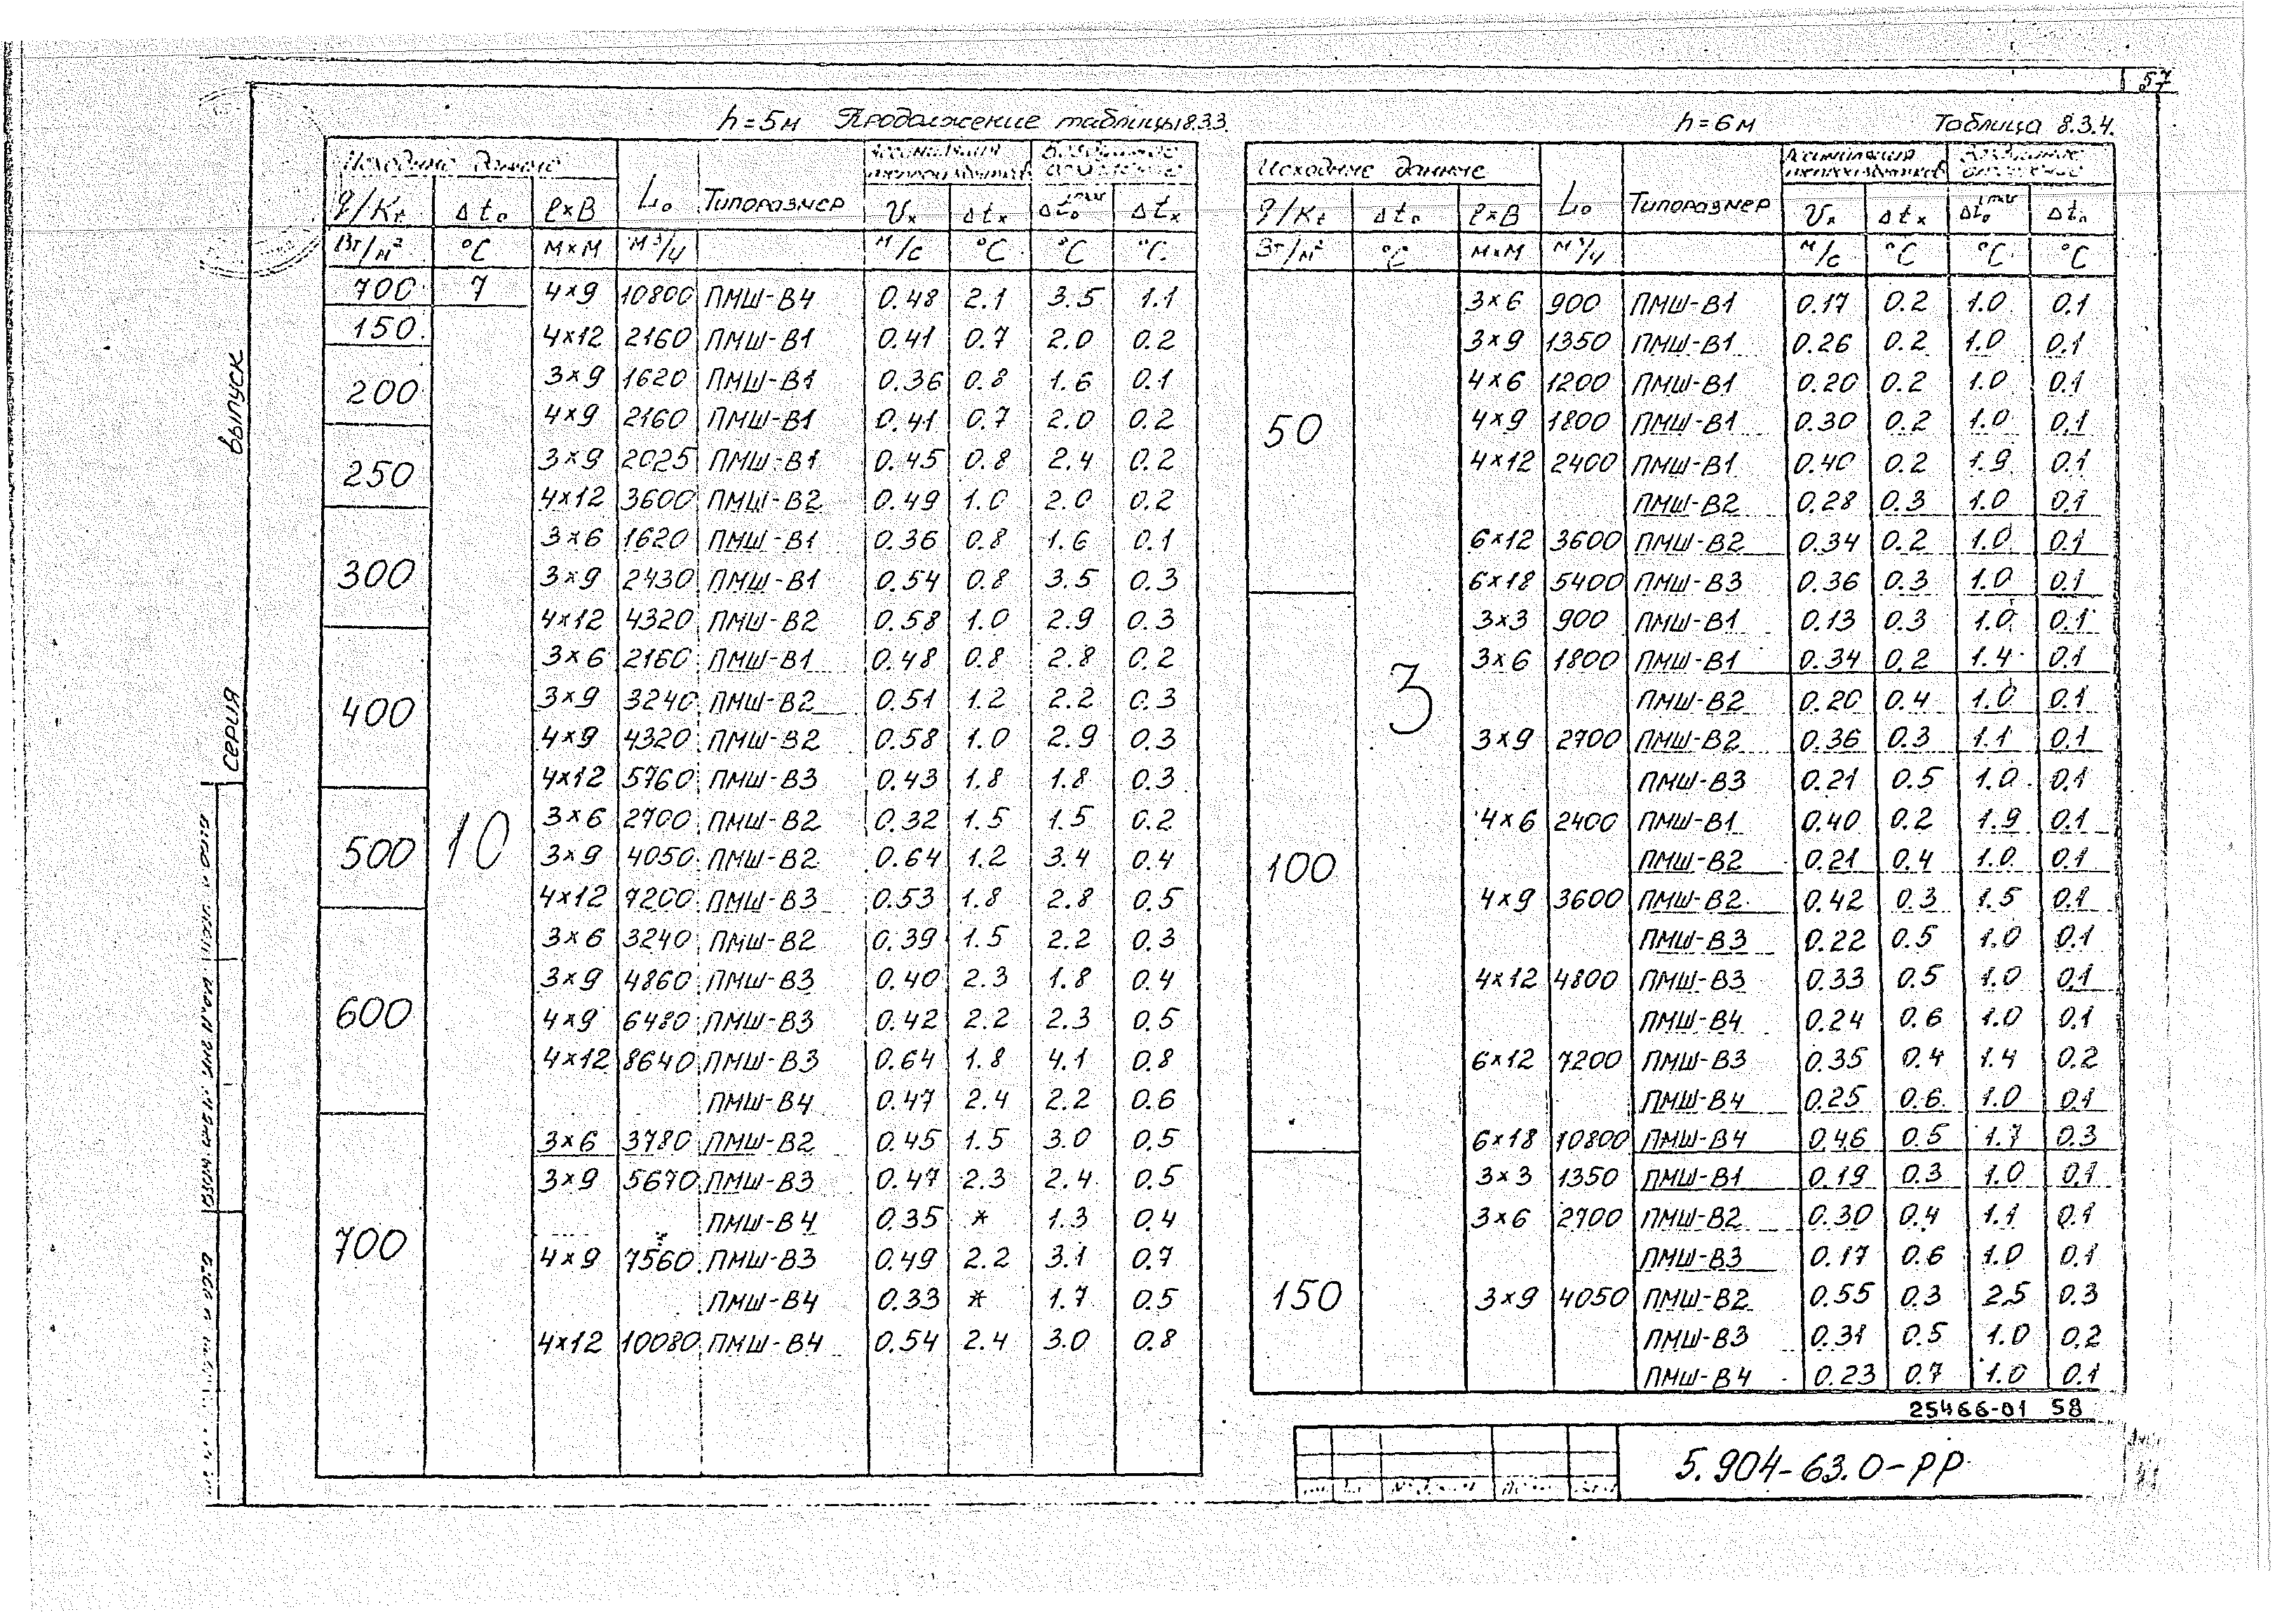 57
h=5м Продолжение таблицы 8.3.3.
Исходные данные L₀ Типоразмер Ассимиляция теплоизбытков Воздушное отопление
q/Kt Δt₀ ℓ×В Vx Δtx Δt₀max Δtx
Вт/м² °С м×м м³/ч м/с °С °С °С
700 7 4×9 10800 ПМШ-В4 0.48 2.1 3.5 1.1
150 10 4×12 2160 ПМШ-В1 0.41 0.7 2.0 0.2
200 3×9 1620 ПМШ-В1 0.36 0.8 1.6 0.1
4×9 2160 ПМШ-В1 0.41 0.7 2.0 0.2
250 3×9 2025 ПМШ-В1 0.45 0.8 2.4 0.2
4×12 3600 ПМШ-В2 0.49 1.0 2.0 0.2
300 3×6 1620 ПМШ-В1 0.36 0.8 1.6 0.1
3×9 2430 ПМШ-В1 0.54 0.8 3.5 0.3
4×12 4320 ПМШ-В2 0.58 1.0 2.9 0.3
400 3×6 2160 ПМШ-В1 0.48 0.8 2.8 0.2
3×9 3240 ПМШ-В2 0.51 1.2 2.2 0.3
4×9 4320 ПМШ-В2 0.58 1.0 2.9 0.3
4×12 5760 ПМШ-В3 0.43 1.8 1.8 0.3
500 3×6 2700 ПМШ-В2 0.32 1.5 1.5 0.2
3×9 4050 ПМШ-В2 0.64 1.2 3.4 0.4
4×12 7200 ПМШ-В3 0.53 1.8 2.8 0.5
600 3×6 3240 ПМШ-В2 0.39 1.5 2.2 0.3
3×9 4860 ПМШ-В3 0.40 2.3 1.8 0.4
4×9 6480 ПМШ-В3 0.42 2.2 2.3 0.5
4×12 8640 ПМШ-В3 0.64 1.8 4.1 0.8
ПМШ-В4 0.47 2.4 2.2 0.6
700 3×6 3780 ПМШ-В2 0.45 1.5 3.0 0.5
3×9 5670 ПМШ-В3 0.47 2.3 2.4 0.5
ПМШ-В4 0.35 * 1.3 0.4
4×9 7560 ПМШ-В3 0.49 2.2 3.1 0.7
ПМШ-В4 0.33 * 1.7 0.5
4×12 10080 ПМШ-В4 0.54 2.4 3.0 0.8
h=6м Таблица 8.3.4.
Исходные данные L₀ Типоразмер Ассимиляция теплоизбытков Воздушное отопление
q/Kt Δt₀ ℓ×В Vx Δtx Δt₀max Δtп
Вт/м² °С м×м м³/ч м/с °С °С °С
50 3 3×6 900 ПМШ-В1 0.17 0.2 1.0 0.1
3×9 1350 ПМШ-В1 0.26 0.2 1.0 0.1
4×6 1200 ПМШ-В1 0.20 0.2 1.0 0.1
4×9 1800 ПМШ-В1 0.30 0.2 1.0 0.1
4×12 2400 ПМШ-В1 0.40 0.2 1.9 0.1
ПМШ-В2 0.28 0.3 1.0 0.1
6×12 3600 ПМШ-В2 0.34 0.2 1.0 0.1
6×18 5400 ПМШ-В3 0.36 0.3 1.0 0.1
100 3×3 900 ПМШ-В1 0.13 0.3 1.0 0.1
3×6 1800 ПМШ-В1 0.34 0.2 1.4 0.1
ПМШ-В2 0.20 0.4 1.0 0.1
3×9 2700 ПМШ-В2 0.36 0.3 1.1 0.1
ПМШ-В3 0.21 0.5 1.0 0.1
4×6 2400 ПМШ-В1 0.40 0.2 1.9 0.1
ПМШ-В2 0.21 0.4 1.0 0.1
4×9 3600 ПМШ-В2 0.42 0.3 1.5 0.1
ПМШ-В3 0.22 0.5 1.0 0.1
4×12 4800 ПМШ-В3 0.33 0.5 1.0 0.1
ПМШ-В4 0.24 0.6 1.0 0.1
6×12 7200 ПМШ-В3 0.35 0.4 1.4 0.2
ПМШ-В4 0.25 0.6 1.0 0.1
6×18 10800 ПМШ-В4 0.46 0.5 1.7 0.3
150 3×3 1350 ПМШ-В1 0.19 0.3 1.0 0.1
3×6 2700 ПМШ-В2 0.30 0.4 1.1 0.1
ПМШ-В3 0.17 0.6 1.0 0.1
3×9 4050 ПМШ-В2 0.55 0.3 2.5 0.3
ПМШ-В3 0.31 0.5 1.0 0.2
ПМШ-В4 0.23 0.7 1.0 0.1
25466-01 58
5.904-63.0-РР
выпуск
серия